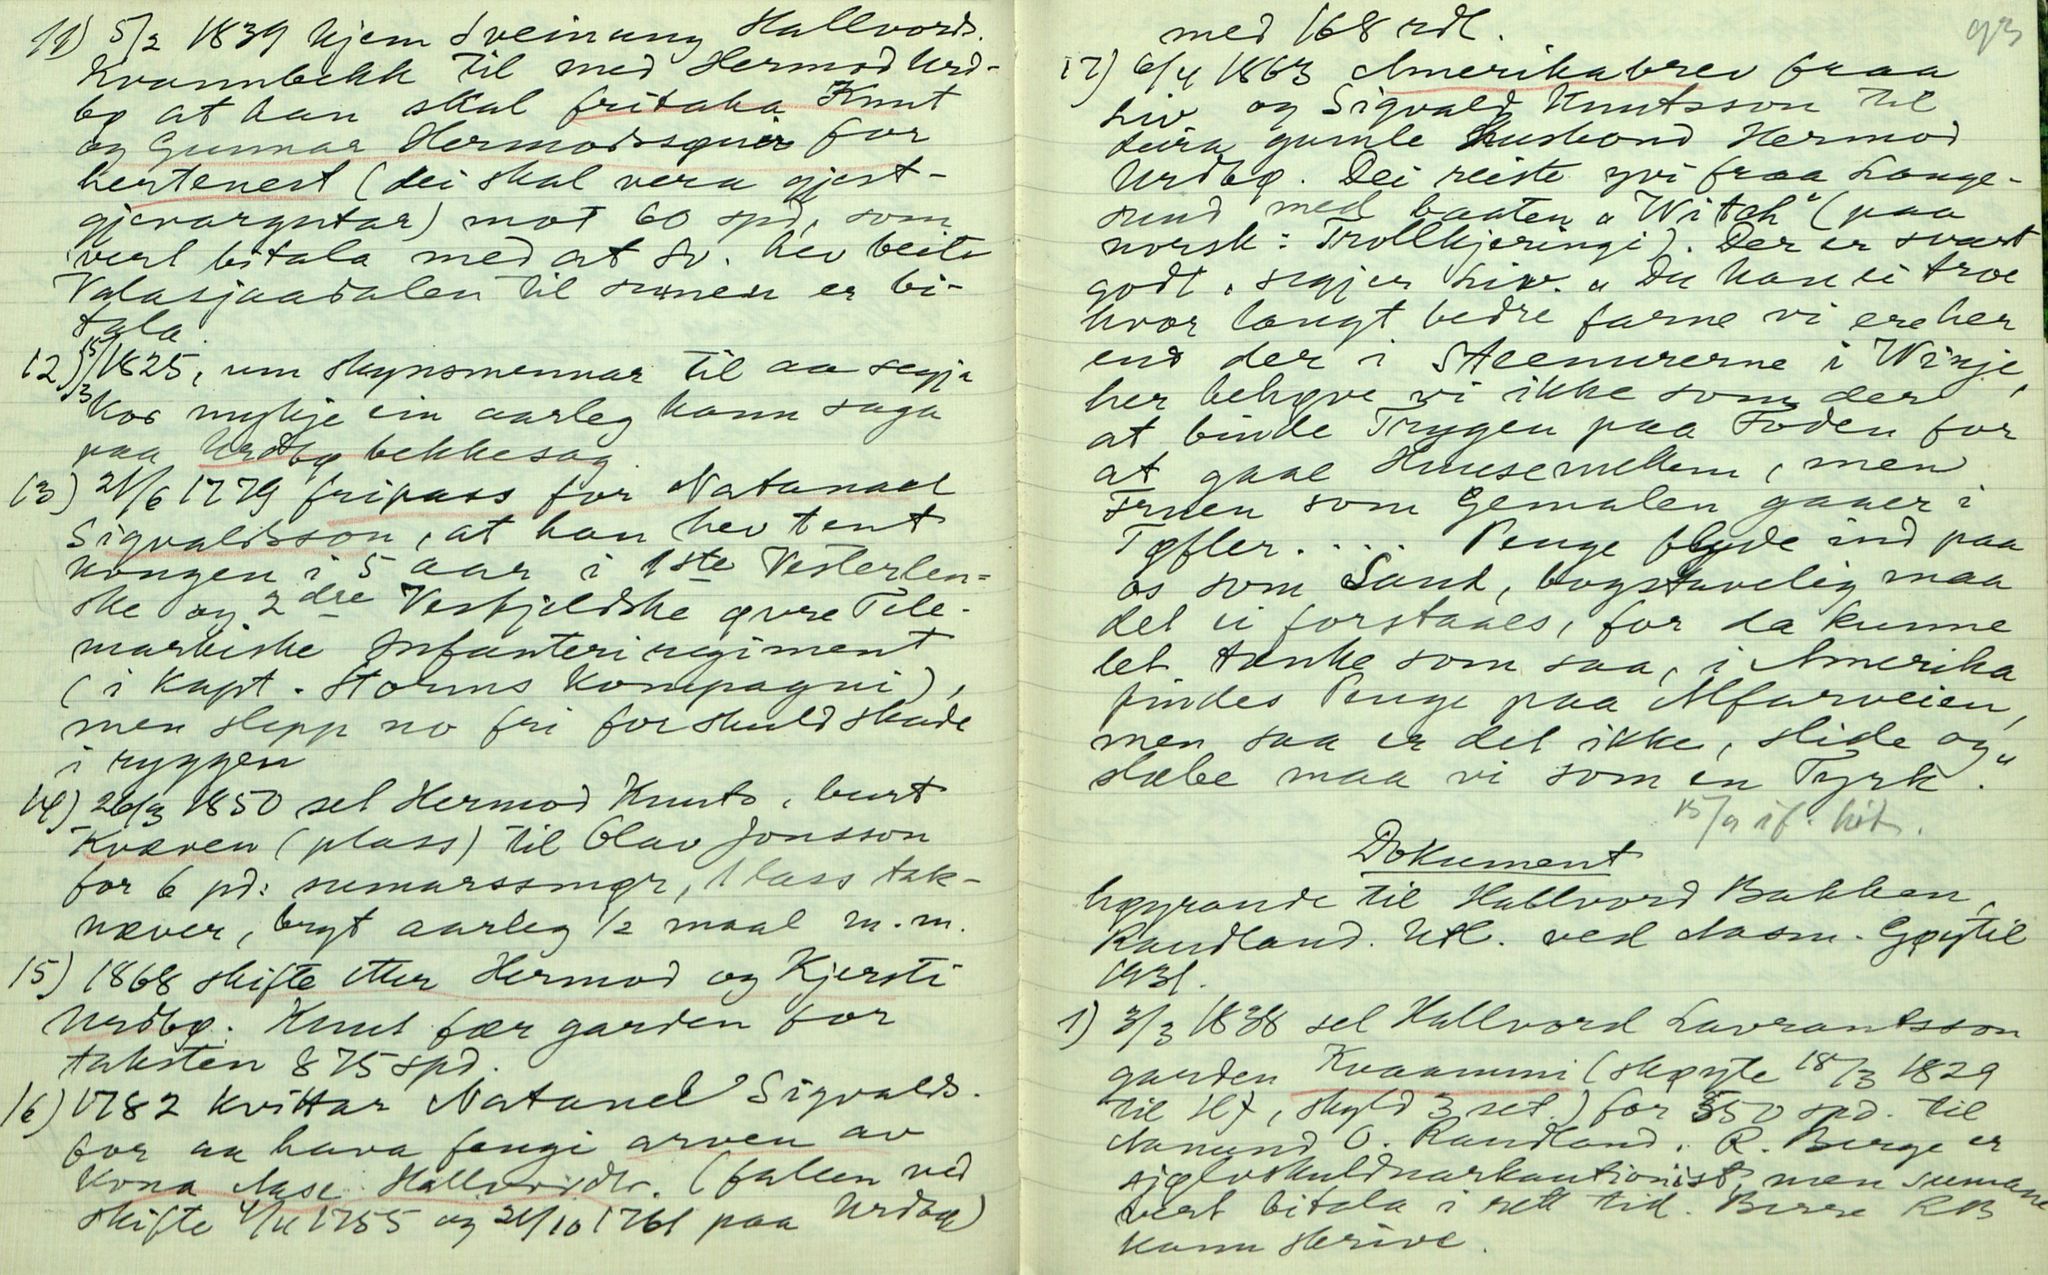 11) 5/2 1839 kjem Sveinung Hallvords.
Kvannbekk til med Hermod Urd-
bø at han skal fritaka Knut
og Gunnar Hermodssøner for
hertenest (dei skal vera gjest-
gjevargutar) mot 60 spd, som
vert bitala med at Sv. hev beite
Valasjaadalen til sumen er bi-
tala.
12) 15/3 1825, um skynsmennar til aa segja
kor mykje ein aarleg kann saga
paa Urdbø bekkesag.
13) 21/6 1779 fripass for Natanael
Sigvaldsson, at han hev tent
kongen i 5 aar i 1ste Vesterlen-
ske og 2dre Vesfjeldske øvre Tele-
markiske Infanteriregiment
(i Kapt. Storms Kompagni),
men slepp no fri for skuld skade
i ryggen
14) 26/3 1850 sel Hermod Knuts. burt
Kvæven (plass) til Olav Jonsson
for 6 pd: sumarssmør, 1 lass tak-
næver, bryt aarleg 1/2 maal m.m.
15) 1868 skifte etter Hermod og Kjersti
Urdbø. Knut fær garden for
taksten 875 spd.
16) 1782 kvittar Natanel Sigvalds.
for aa hava fengi arven av
kona Aase Hallvordsdtr. (fallen ved
skifte 4/11 1755 og 21/10 1761 paa Urdbø)
med 168 rdl.
93
17) 6/4 1863 Amerikabrev fraa
Liv og Sigvald Knutsson til
deira gamle Husbond Hermod
Urdbø. Dei reiste yvi fraa Lange-
sund med baaten "Witch" (paa
norsk: Trollkjeringi). Der er svært
godt, segjer Liv. "Du kan ei troe
hvor langt bedre farne vi ere her
end der i Steenurerne i Winje,
her behøve vi ikke som der
at binde Trygen paa Foden for
at gaae Huusemellem, men
Fruen som Gemalen gaaer i
Tøfler. . . . . Penge flyde ind paa
os som Sand, bogstavelig maa
det ei forstaaes, for da kunne
let tænke som saa, i Amerika
findes Penge paa Alfarveien,
men saa er det ikke, slide og
slæbe maa vi som en Tyrk."
15/9 if. hit.
Dokument
høyrande til Hallvord Bakken,
Raudland. Utl. ved Aasm. Gøytil
1931.
1) 3/3 1838 sel Hallvord Lavrantsson
garden Kvaammi (skøyte 18/3 1829
til H, skyld 3 set.) for 550 spd. til
Aanund O. Raudland. R. Berge er
sjølvskuldnarkautionist, men sumane
vert bitala i rett tid. Berre RB
kann skrive.